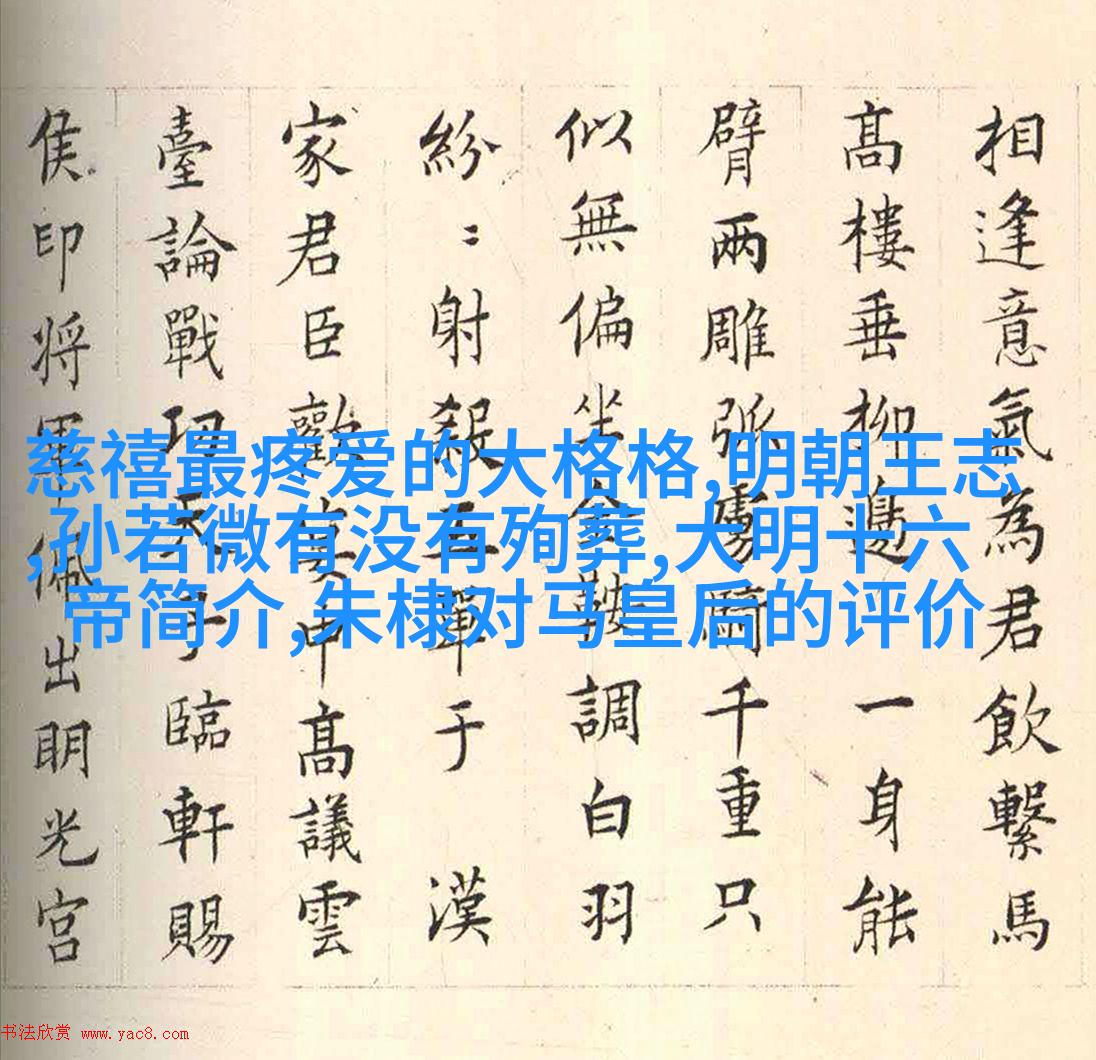 相逢意氣為君飲繫馬
高樓垂柳邊一身能
臂兩雕弧虜千重只
似無偏坐金鞍調白羽
紛〻射殺五單于 漢
家君臣歡高議雲
臺論戰功天子臨軒賜
侯印将軍佩出明光宮
慈禧最疼爱的大格格,明朝王志
,孙若微有没有殉葬,大明十六
帝简介,朱棣对马皇后的评价
书法欣赏 www.yac8.com